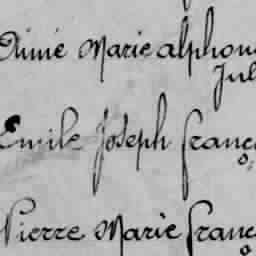 Aimé Marie alphon
Jul
Emile Joseph franç
Pierre Marie franç